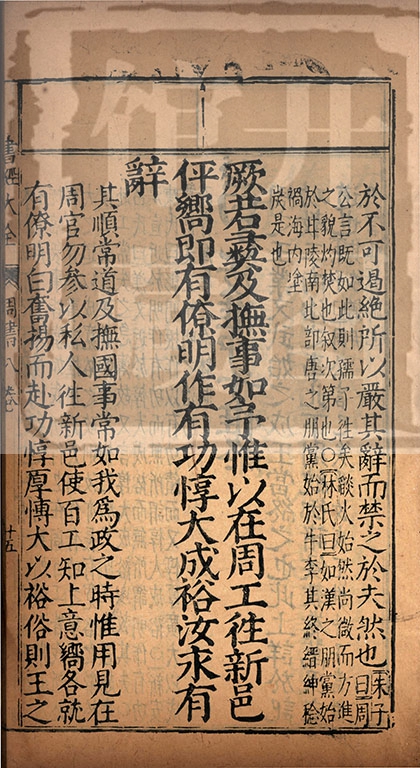 於不可遏絕所以嚴其辭而禁之於未然也朱子曰周
公言既如此則孺子徃矣燄火始然尚微而方進
之貌灼焚也敘次第也○林氏曰如漢之朋黨始
於甘陵南北部唐之朋黨始於牛李其終縉紳稔
禍海内塗
炭是也
厥若彝及撫事如予惟以在周工徃新邑
伻嚮即有僚明作有功惇大成裕汝永有
辭
其順常道及撫國事常如我爲政之時惟用見在
周官勿參以私人徃新邑使百工知上意嚮各就
有僚明白奮揚而赴功惇厚博大以裕俗則王之
書經大全 周書八卷 十五